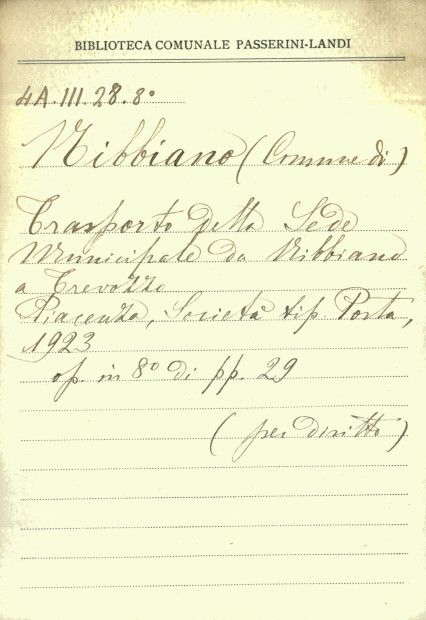 BIBLIOTECA COMUNALE PASSERINI-LANDI
4A.III.28.8°
Nibbiano (Comune di)
Trasporto della Sede
Municipale da Nibbiano
a Trevozzo
Piacenza, Società tip. Porta,
1923
op. in 8° di pp. 29
(per diritto)